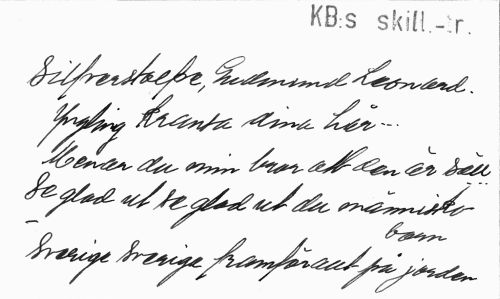 KB:s skill.-tr.
Silfverstolpe, Gudmund Leonard.
Yngling kransa dina hår...
Menar du min bror att den är säll...
Se glad ut se glad ut du människo
barn
Sverige Sverige framförallt på jorden